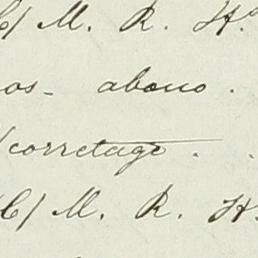 C/ M. R. H.
os- abono.
/corretage.
C/ M. R. H